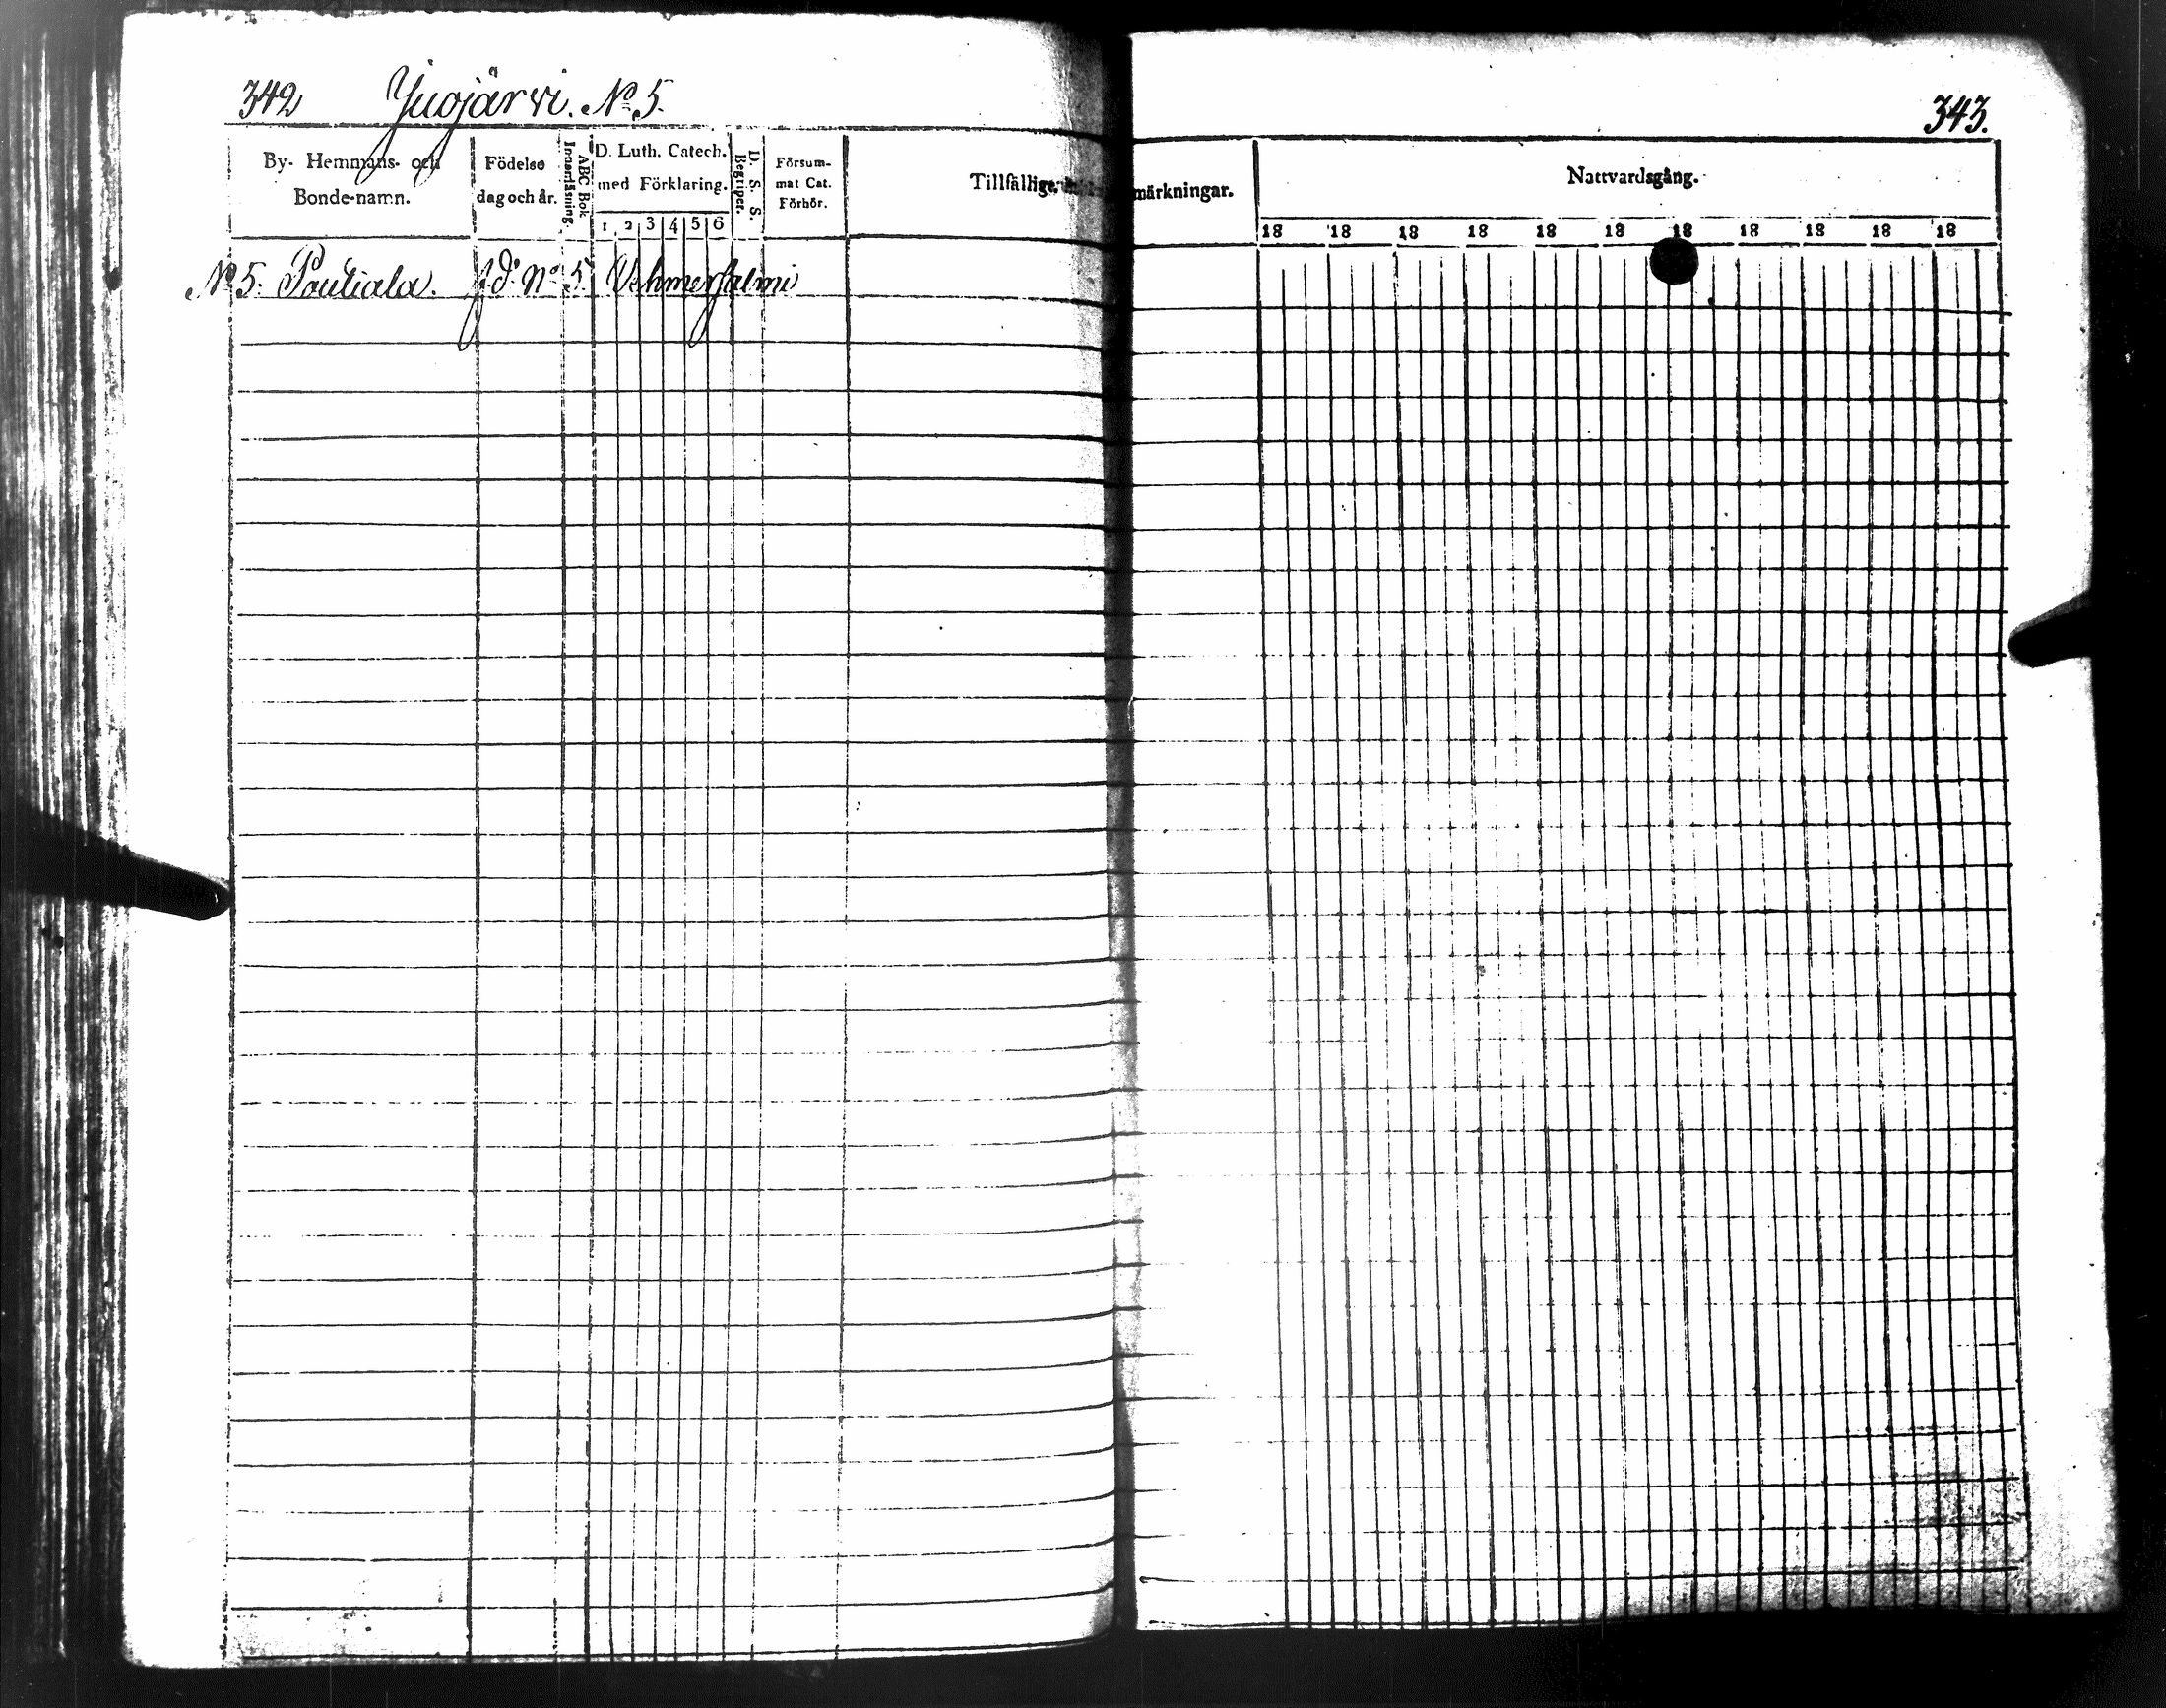 342 Juojärvi. No 5.
343.
By- Hemmans- och Bonde-namn.
Födelse dag och år.
ABC Bok Innanläsning.
D. Luth. Catech. med Förklaring.
1 2 3 4 5 6
D. S. S. Begriper.
Försum- mat Cat. Förhör.
Tillfällige märkningar.
Nattvardsgång.
18 18 18 18 18 18 18 18 18 18 18
No 5. Pautiala. f.d. No 5 Vehmersalmi